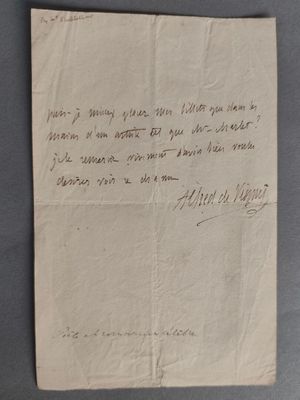 puis-je mieux placer mes billets que dans les
mains d'un artiste tel que Mr
je le remercie vivement d'avoir bien voulu
désirer voir
Alfred de Vigny
Poète et romancier célèbre